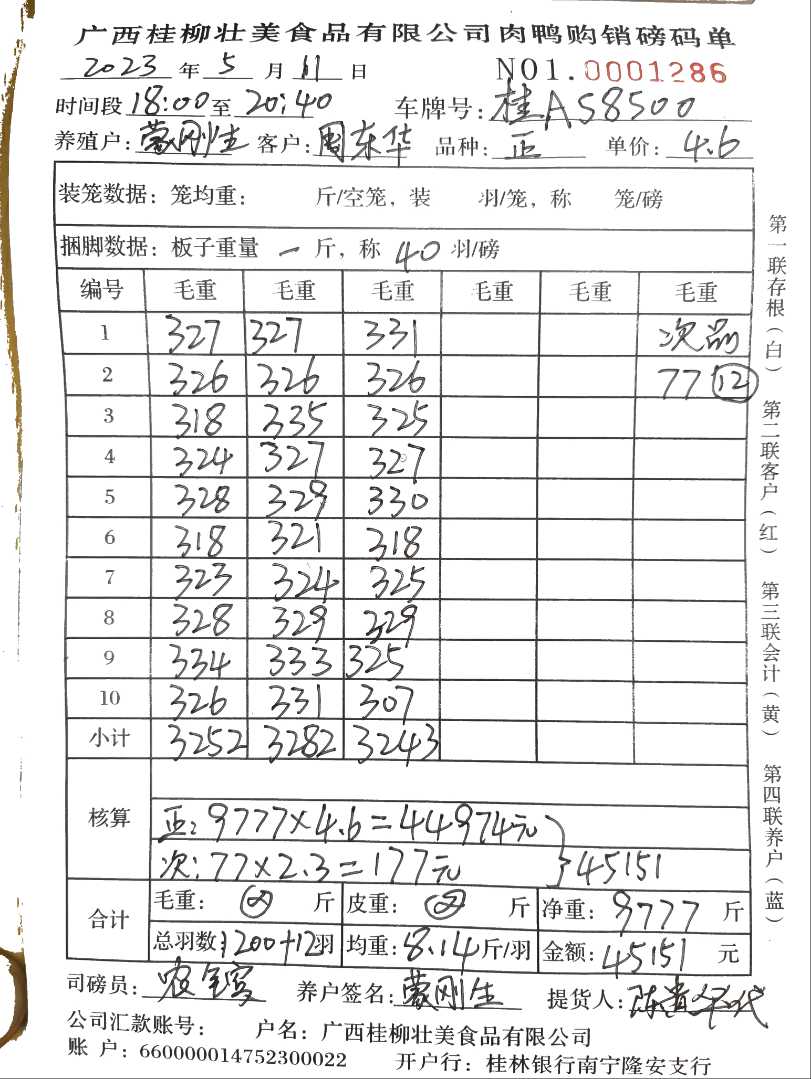 广西桂柳壮美食品有限公司肉鸭购销磅码单
2023 年 5 月 11 日 NO1.0001286
时间段 18:00 至 20:40 车牌号: 桂A58500
养殖户: 蒙刚生 客户: 周东华 品种: 正 单价: 4.6
装笼数据: 笼均重: 斤/空笼, 装 羽/笼, 称 笼/磅
捆脚数据: 板子重量 一 斤, 称 40 羽/磅
编号 毛重 毛重 毛重 毛重 毛重 毛重
1 327 327 331 次品
2 326 326 326 77 12
3 318 335 325
4 324 327 327
5 328 329 330
6 318 321 318
7 323 324 325
8 328 329 329
9 334 333 325
10 326 331 307
小计 3252 3282 3243
核算
正: 9777×4.6=44974元
次: 77×2.3=177元 45151
合计
毛重: 斤 皮重: 斤 净重: 9777 斤
总羽数: 1200+12羽 均重: 8.14 斤/羽 金额: 45151 元
司磅员: 养户签名: 蒙刚生 提货人: 陈贵华代
公司汇款账号: 户名: 广西桂柳壮美食品有限公司
账 户: 660000014752300022 开户行: 桂林银行南宁隆安支行
第一联存根(白) 第二联客户(红) 第三联会计(黄) 第四联养户(蓝)